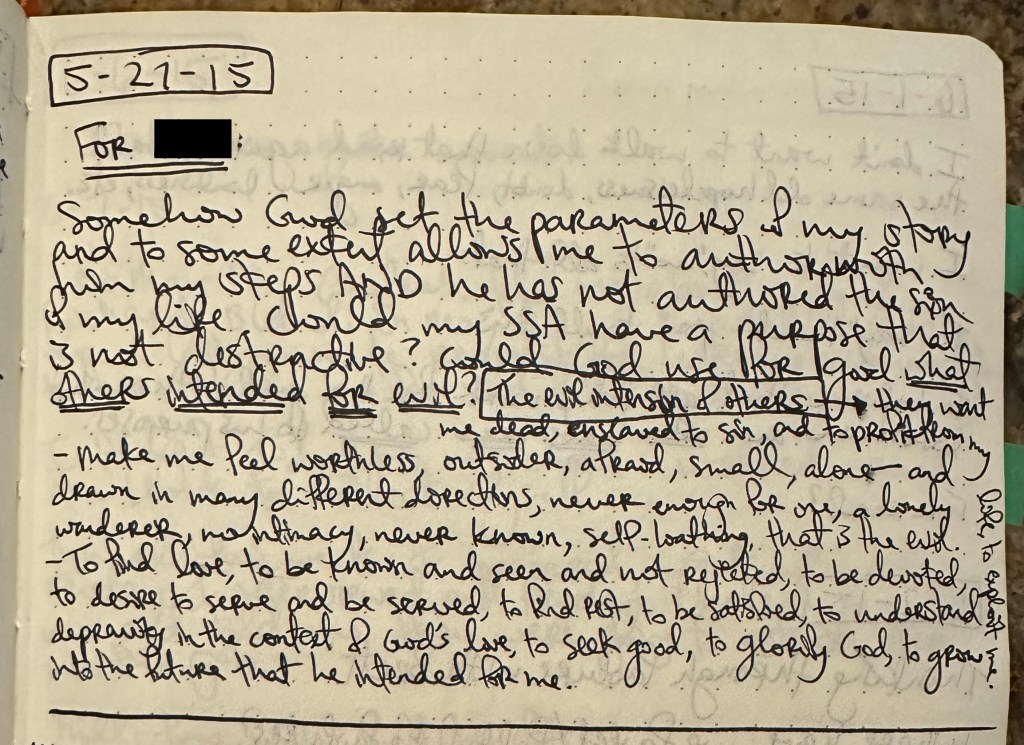 5-27-15
FOR :
Somehow God set the parameters of my story
and to some extent allows me to author with
him my steps AND he has not authored the sin
of my life. Could my SSA have a purpose that
is not destructive? Could God use FOR good what
others intended for evil? The evil intension of others → they want
me dead, enslaved to sin, and to profit from my
life to exploit me.
- make me feel worthless, outsider, afraid, small, alone and
drawn in many different directions, never enough for one, a lonely
wanderer, no intimacy, never known, self-loathing, that is the evil.
- To find love, to be known and seen and not rejected, to be devoted,
to desire to serve and be served, to find rest, to be satisfied, to understand
depravity in the context of God's love, to seek good, to glorify God, to grow
into the future that he intended for me.